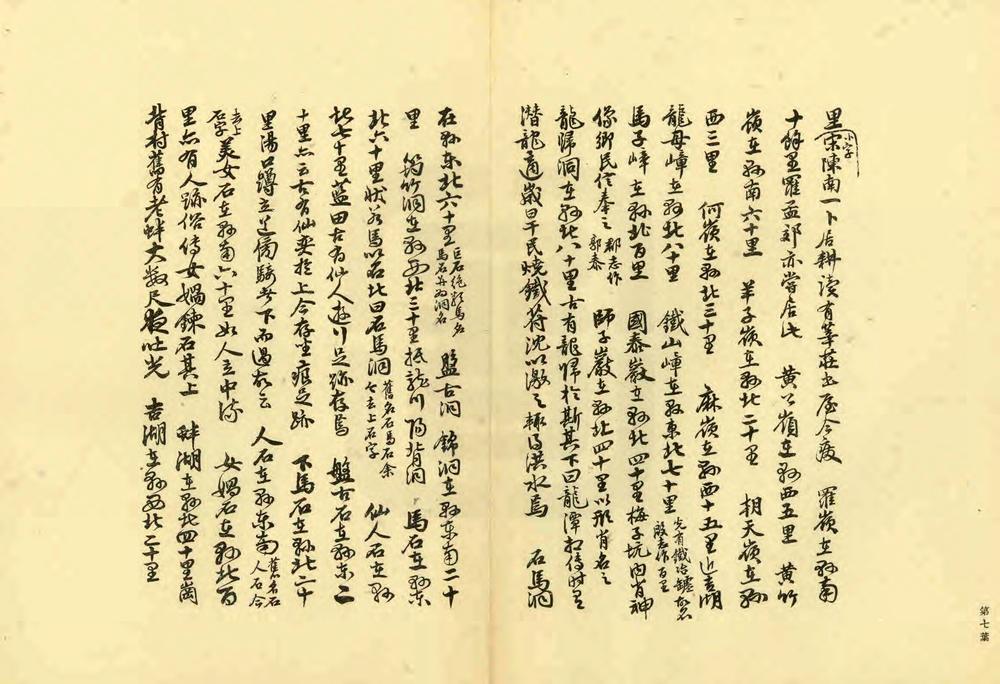 小字
里宋陳南一卜居耕讀有莘莊書屋今廢　羅嶺在縣南
十餘里羅孟郊亦嘗居此　黃公嶺在縣西五里　黃竹
嶺在縣南六十里　羊子嶺在縣北二十里　朝天嶺在縣
西三里　何嶺在縣北三十里　麻嶺在縣西十五里近吉湖
龍母嶂在縣北八十里　鐵山嶂在縣東北七十里　先有鐵冶爐故名
殷志作百里
馬子嶂在縣北百里　國泰巖在縣北四十里梅子坑內有神
像鄉民信奉之　郝志作
郭泰　師子巖在縣北四十里以形肖名之
龍歸洞在縣北八十里古有龍歸於斯其下曰龍潭相傳時有
潛龍適歲旱干民燒鐵符沈以激之輒得洪水焉　石馬洞
在縣東北六十里　巨石絕類馬名
馬石并為洞名　盤古洞　錦洞在縣東南二十
里　筠竹洞在縣西北三十里抵龍川陽背洞　馬石在縣東
北六十里狀若馬以名此曰石馬洞　舊名石馬石余
今去上石字　仙人石在縣
北七十里藍田古有仙人遊行足跡存焉　盤古石在縣東二
十里亦云古有仙奕於上今存坐痕足跡　下馬石在縣北二十
里湯口蹲立道傍騎者下而過故云　人石在縣東南　舊名石
人石今
去上
石字　美女石在縣南六十里如人立中流　女媧石在縣北百
里亦有人跡俗傳女媧鍊石其上　蚌湖在縣北四十里崗
背村舊有老蚌大數尺夜吐光　吉湖在縣西北二十里
第七葉